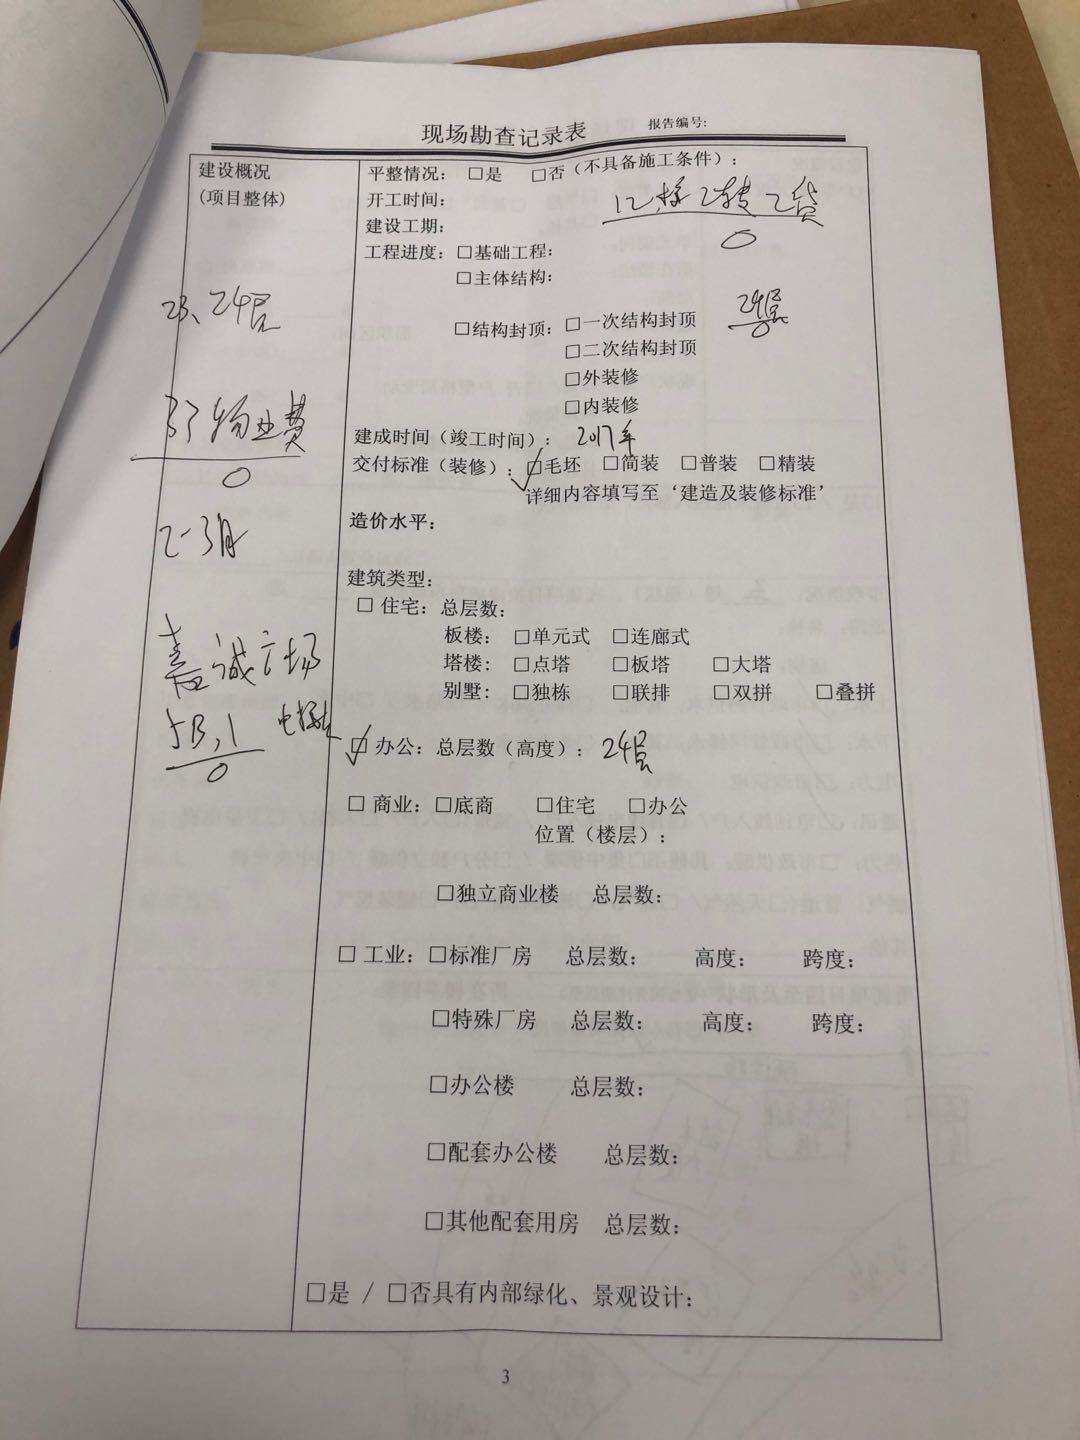 现场勘查记录表 报告编号:
建设概况
(项目整体)
平整情况： □是 □否（不具备施工条件）：
开工时间：
建设工期：
工程进度：□基础工程：
□主体结构：
23、24层
24层
□结构封顶：□一次结构封顶
□二次结构封顶
□外装修
□内装修
物业费
建成时间（竣工时间）： 2017年
交付标准（装修）：☑毛坯 □简装 □普装 □精装
详细内容填写至‘建造及装修标准’
造价水平：
2-3月
建筑类型：
□ 住宅：总层数：
板楼： □单元式 □连廊式
塔楼： □点塔 □板塔 □大塔
别墅: □独栋 □联排 □双拼 □叠拼
嘉诚广场
☑ 办公：总层数（高度）： 24层
□ 商业：□底商 □住宅 □办公
位置（楼层）：
□独立商业楼 总层数：
□ 工业：□标准厂房 总层数： 高度： 跨度：
□特殊厂房 总层数： 高度： 跨度：
□办公楼 总层数：
□配套办公楼 总层数：
□其他配套用房 总层数：
□是 / □否具有内部绿化、景观设计：
3